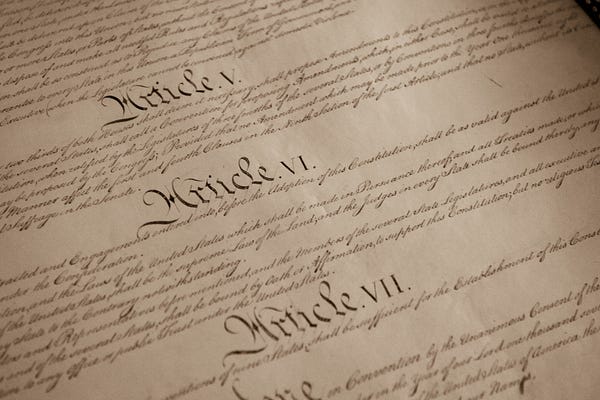 Congress into this Union; but no new State shall
or more States, or Parts of States, without the Consent of
dispose of and make all needful Rules and
shall be so construed as to Prejudice any Claims
Executive (when the Legislature cannot be convened) against domestic Violence.
Article. V.
two thirds of both Houses shall deem it necessary, shall propose Amendments to this Constitution,
the several States, shall call a Convention for proposing Amendments, which, in either Case, shall be valid
when ratified by the Legislatures of three fourths of the several States, or by Conventions in three fourths
be proposed by the Congress; Provided that no Amendment which may be made prior to the Year One thousand
Manner affect the first and fourth Clauses in the Ninth Section of the first Article; and that no State, without
Suffrage in the Senate.
Article. VI.
and Engagements entered into, before the Adoption of this Constitution, shall be as valid against the United
under the Confederation.
and the Laws of the United States which shall be made in Pursuance thereof; and all Treaties made, or which
of the United States, shall be the supreme Law of the Land; and the Judges in every State shall be bound thereby, any
State to the Contrary notwithstanding.
and Representatives before mentioned, and the Members of the several State Legislatures, and all executive and
of the several States, shall be bound by Oath or Affirmation, to support this Constitution; but no religious Test
to any Office or public Trust under the United States.
Article. VII.
of nine States, shall be sufficient for the Establishment of this
done in Convention by the Unanimous Consent of the
in the Year of our Lord one thousand seven
of the United States of America the
our Names